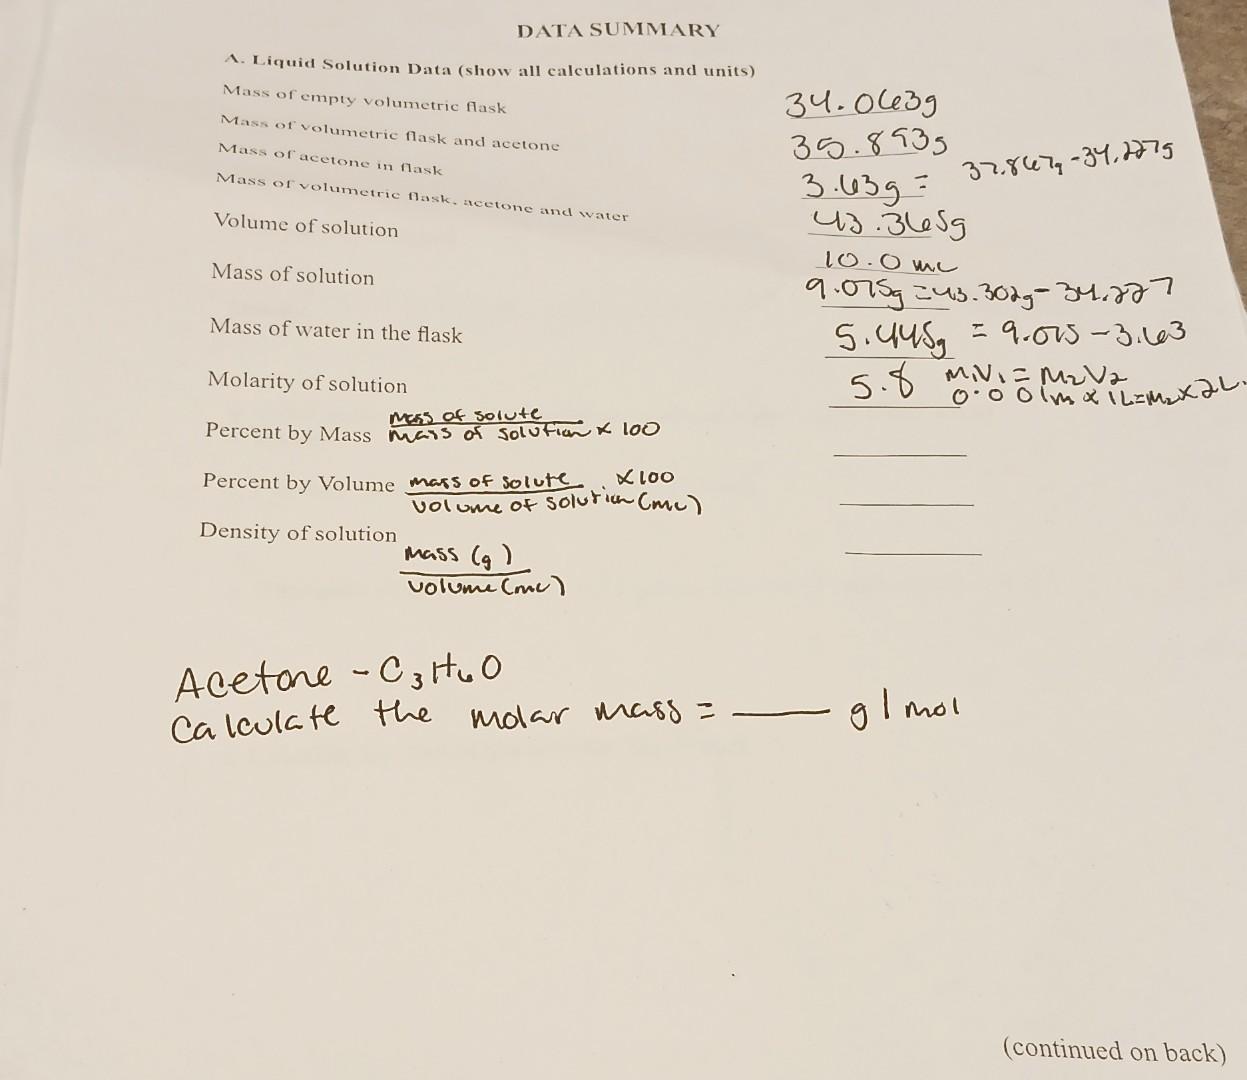 DATA SUMMARY
A. Liquid Solution Data (show all calculations and units)
Mass of empty volumetric flask 34.063g
Mass of volumetric flask and acetone 35.893g
Mass of acetone in flask 3.63g = 37.867g - 34.227g
Mass of volumetric flask, acetone and water 43.365g
Volume of solution 10.0 mL
Mass of solution 9.075g = 43.302g - 34.227
Mass of water in the flask 5.445g = 9.075 - 3.63
Molarity of solution 5.8 M1V1 = M2V2
0.001m x 1L = M2 x 2L.
Percent by Mass mass of solute / mass of solution x 100
Percent by Volume mass of solute / volume of solution (mL) x 100
Density of solution mass (g) / volume (mL)
Acetone - C3H6O
Calculate the molar mass = ___ g/mol
(continued on back)